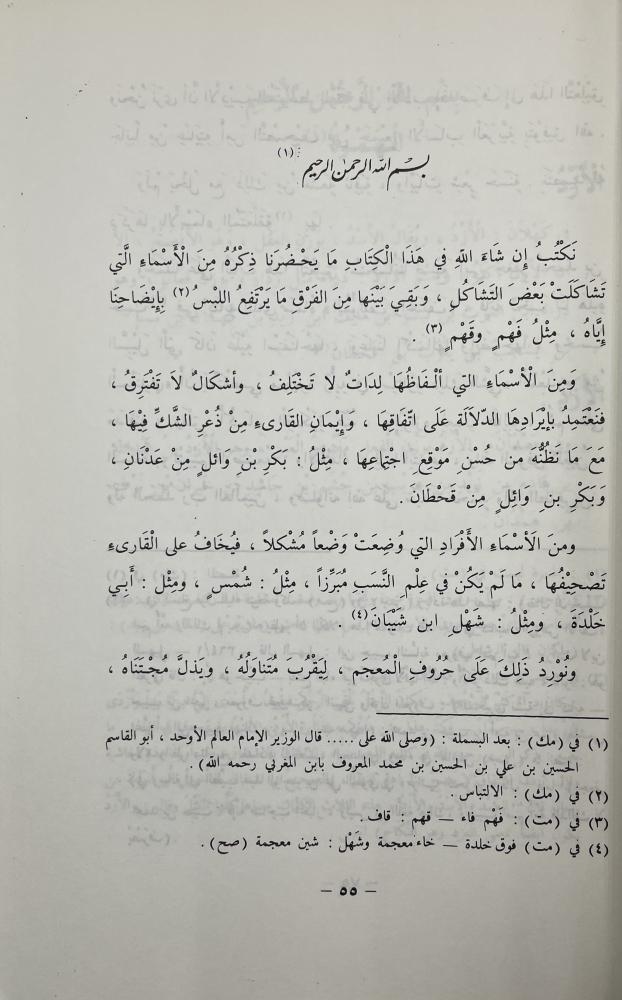 بسم الله الرحمن الرحيم (١)
نَكْتُبُ إِن شَاءَ اللهِ في هَذَا الْكِتَابِ مَا يَحْضُرُنا ذِكْرُهُ مِنَ الْأَسْمَاءِ الَّتي
تَشَاكَلَتْ بَعْضَ التَّشَاكُلِ ، وَبَقِيَ بَيْنَها مِنَ الفَرْقِ مَا يَرْتَفِعُ اللبْسُ (٢) بِإِيْضَاحِنَا
إِيَّاهُ ، مِثْلُ فَهْمٍ وقَهْمٍ (٣) .
وَمِنَ الْأسْمَاءِ التي ألْـفَاظُهَا لِدَاتٌ لا تَخْتَلِفُ ، وأشكَالٌ لاَ تَفْتَرِقُ ،
فنَعْتَمِدُ بإيْرَادِهَا الدّلاَلَة عَلَى اتّفَاقِهَا ، وَإِيْمَانِ القَارىءِ مِنْ ذُعْرِ الشَّكِّ فِيْهَا ،
مَعَ مَا نَظُنُّهُ من حُسْنِ مَوْقِعِ اجْتِمَاعِهَا ، مِثْلُ : بَكْرِ بْنِ وَائلٍ مِنْ عَدْنَانِ ،
وَبَكْرِ بنِ وَائِلٍ مِنْ قَحْطَانَ .
ومنَ الَأسْمَاءِ الأَفْرَادِ التي وُضِعَتْ وَضْعاً مُشْكلاً ، فيُخَافُ على الْقَارىءِ
تَصْحِيْفُهَا ، مَا لَمْ يَكُنْ في عِلْمِ النَّسَبِ مُبَرِّزاً ، مِثْلُ : شُمْسٍ ، ومِثْل : أَبِي
خَلْدَةَ ، ومِثْلُ : شَهْلِ ابن شَيْبَانَ (٤) .
ونُوْرِدُ ذَلِكَ عَلَى حُرُوفِ المُعجَم ، لِيَقْرُبَ مُتَناوَلُهُ ، ويَذلَّ مُجْـتَنَاهُ ،
(١) في (مك) : بعد البسملة : (وصلى الله على ..... قال الوزير الإمام العالم الأوحد ، أبو القاسم
الحسين بن علي بن الحسين بن محمد المعروف بابن المغربي رحمه الله) .
(٢) في (مك) : الالتباس .
(٣) في (مت) : فَهْم فاء — قهم : قاف .
(٤) في (مت) فوق خلدة — خاء معجمة وشَهْل : شين معجمة (صح) .
– ٥٥ –